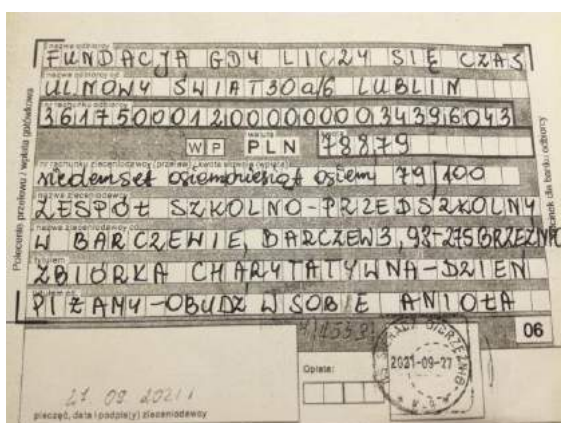 nazwa odbiorcy
FUNDACJA GDY LICZY SIĘ CZAS
nazwa odbiorcy cd.
UL. NOWY ŚWIAT 30a/6 LUBLIN
nr rachunku odbiorcy
36175000120000000034396043
waluta kwota
W P PLN 788,79
nr rachunku zleceniodawcy (przelew) / kwota słownie (wpłata)
siedemset osiemdziesiąt osiem 79/100
nazwa zleceniodawcy
ZESPÓŁ SZKOLNO-PRZEDSZKOLNY
nazwa zleceniodawcy cd.
W BARCZEWIE, BARCZEW 3, 98-275 BRZEŹNIO
tytułem
ZBIÓRKA CHARYTATYWNA-DZIEŃ
tytułem cd.
PIŻAMY-OBUDŹ W SOBIE ANIOŁA
06
Opłata:
2021-09-27
27.09.2021
pieczęć, data i podpis(y) zleceniodawcy
Polecenie przelewu / wpłata gotówkowa
odcinek dla banku odbiorcy